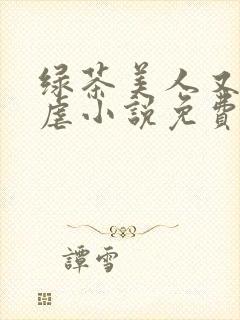 绿茶美人又
虐小說免費
譚雪